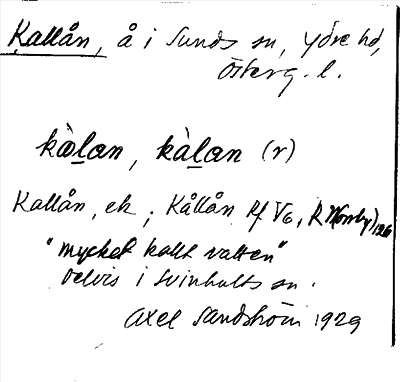 Kallån, å i Sunds sn, Ydre hd,
Österg. l.
kålan, kàlan (r)
Kallån, ek; Kållån Rf V6, R Norrby) 1926
"mycket kallt vatten"
delvis i Svinhults sn.
Axel Sandström 1929